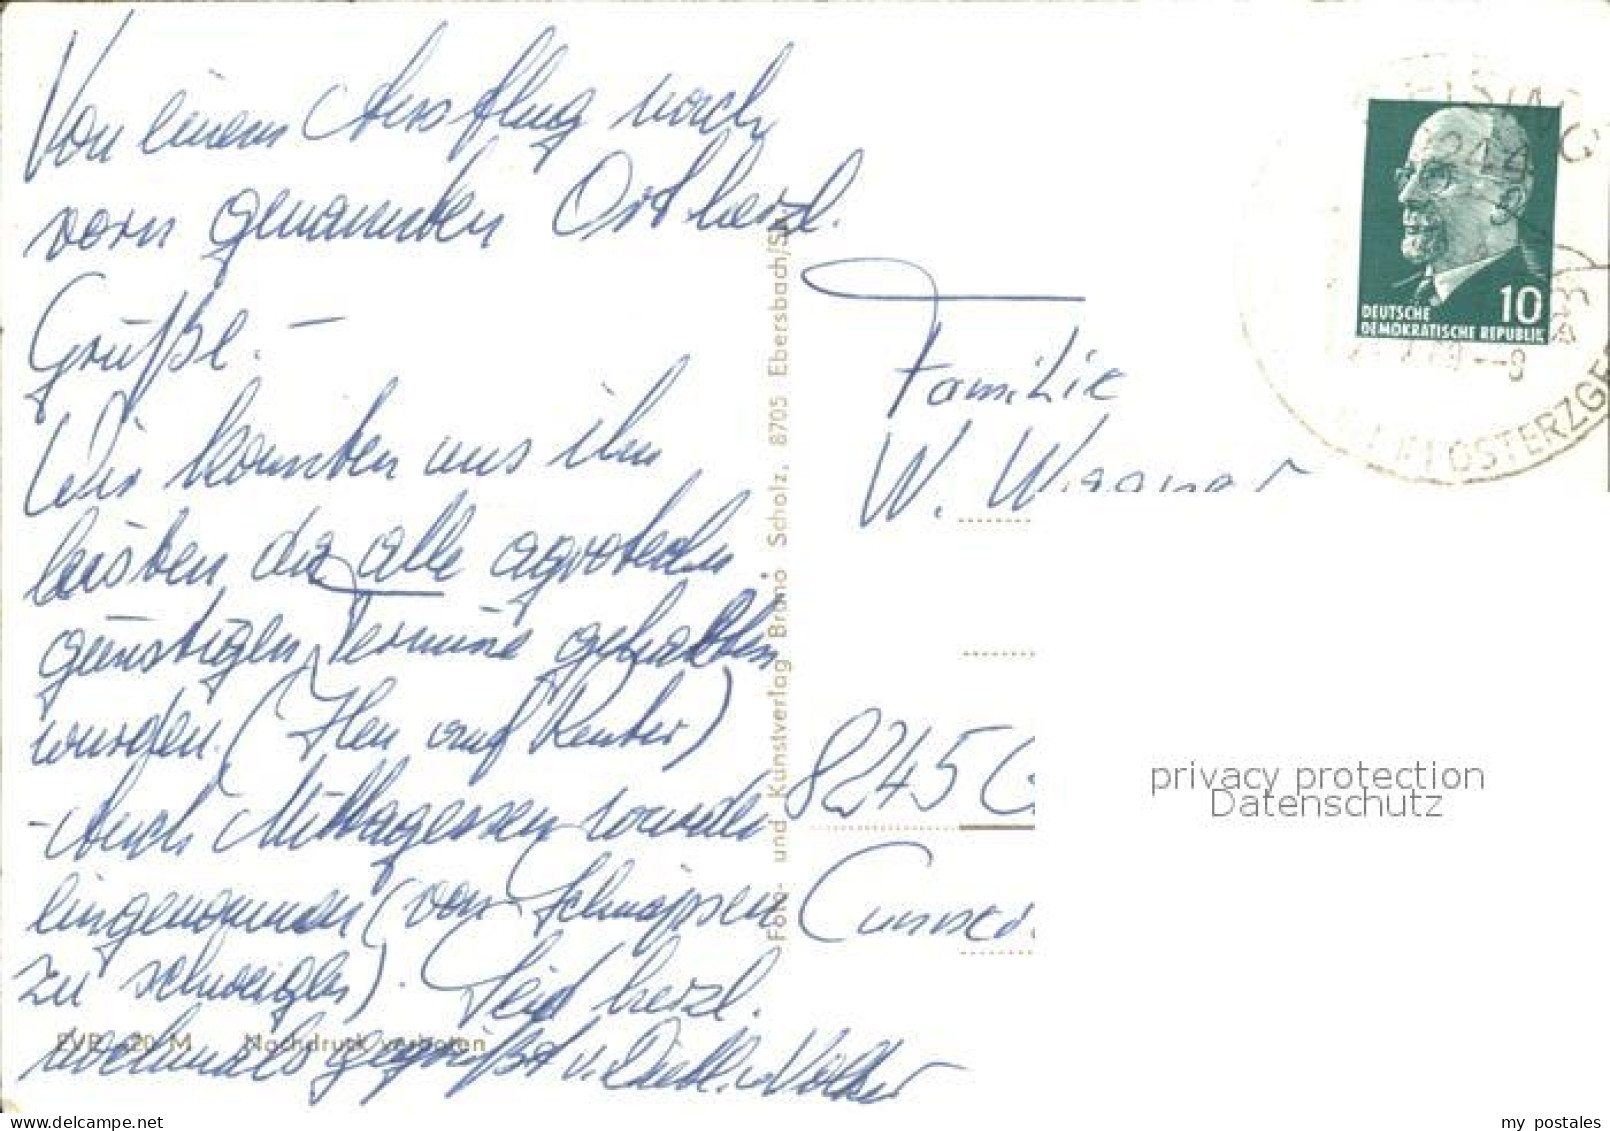 Von einem Ausflug nach
vorn genannten Ort herzl.
Grüße. –
Wir konnten uns ihn
leisten da alle agrotechn
günstigen Termine gehalten
wurden. (Heu auf Reuter)
- Auch Mittagessen wurde
eingenommen (von Schnäpsen
zu schweigen). Seid herzl.
nochmals gegrüßt v. u. Volker
EVP -,20 M Nachdruck verboten
Foto- und Kunstverlag Bruno Scholz, 8705 Ebersbach/Sa.
DEUTSCHE
DEMOKRATISCHE REPUBLIK
10
KLOSTERZGE
Familie
W. Wagner
8245 G
privacy protection
Datenschutz
my postales
delcampe.net